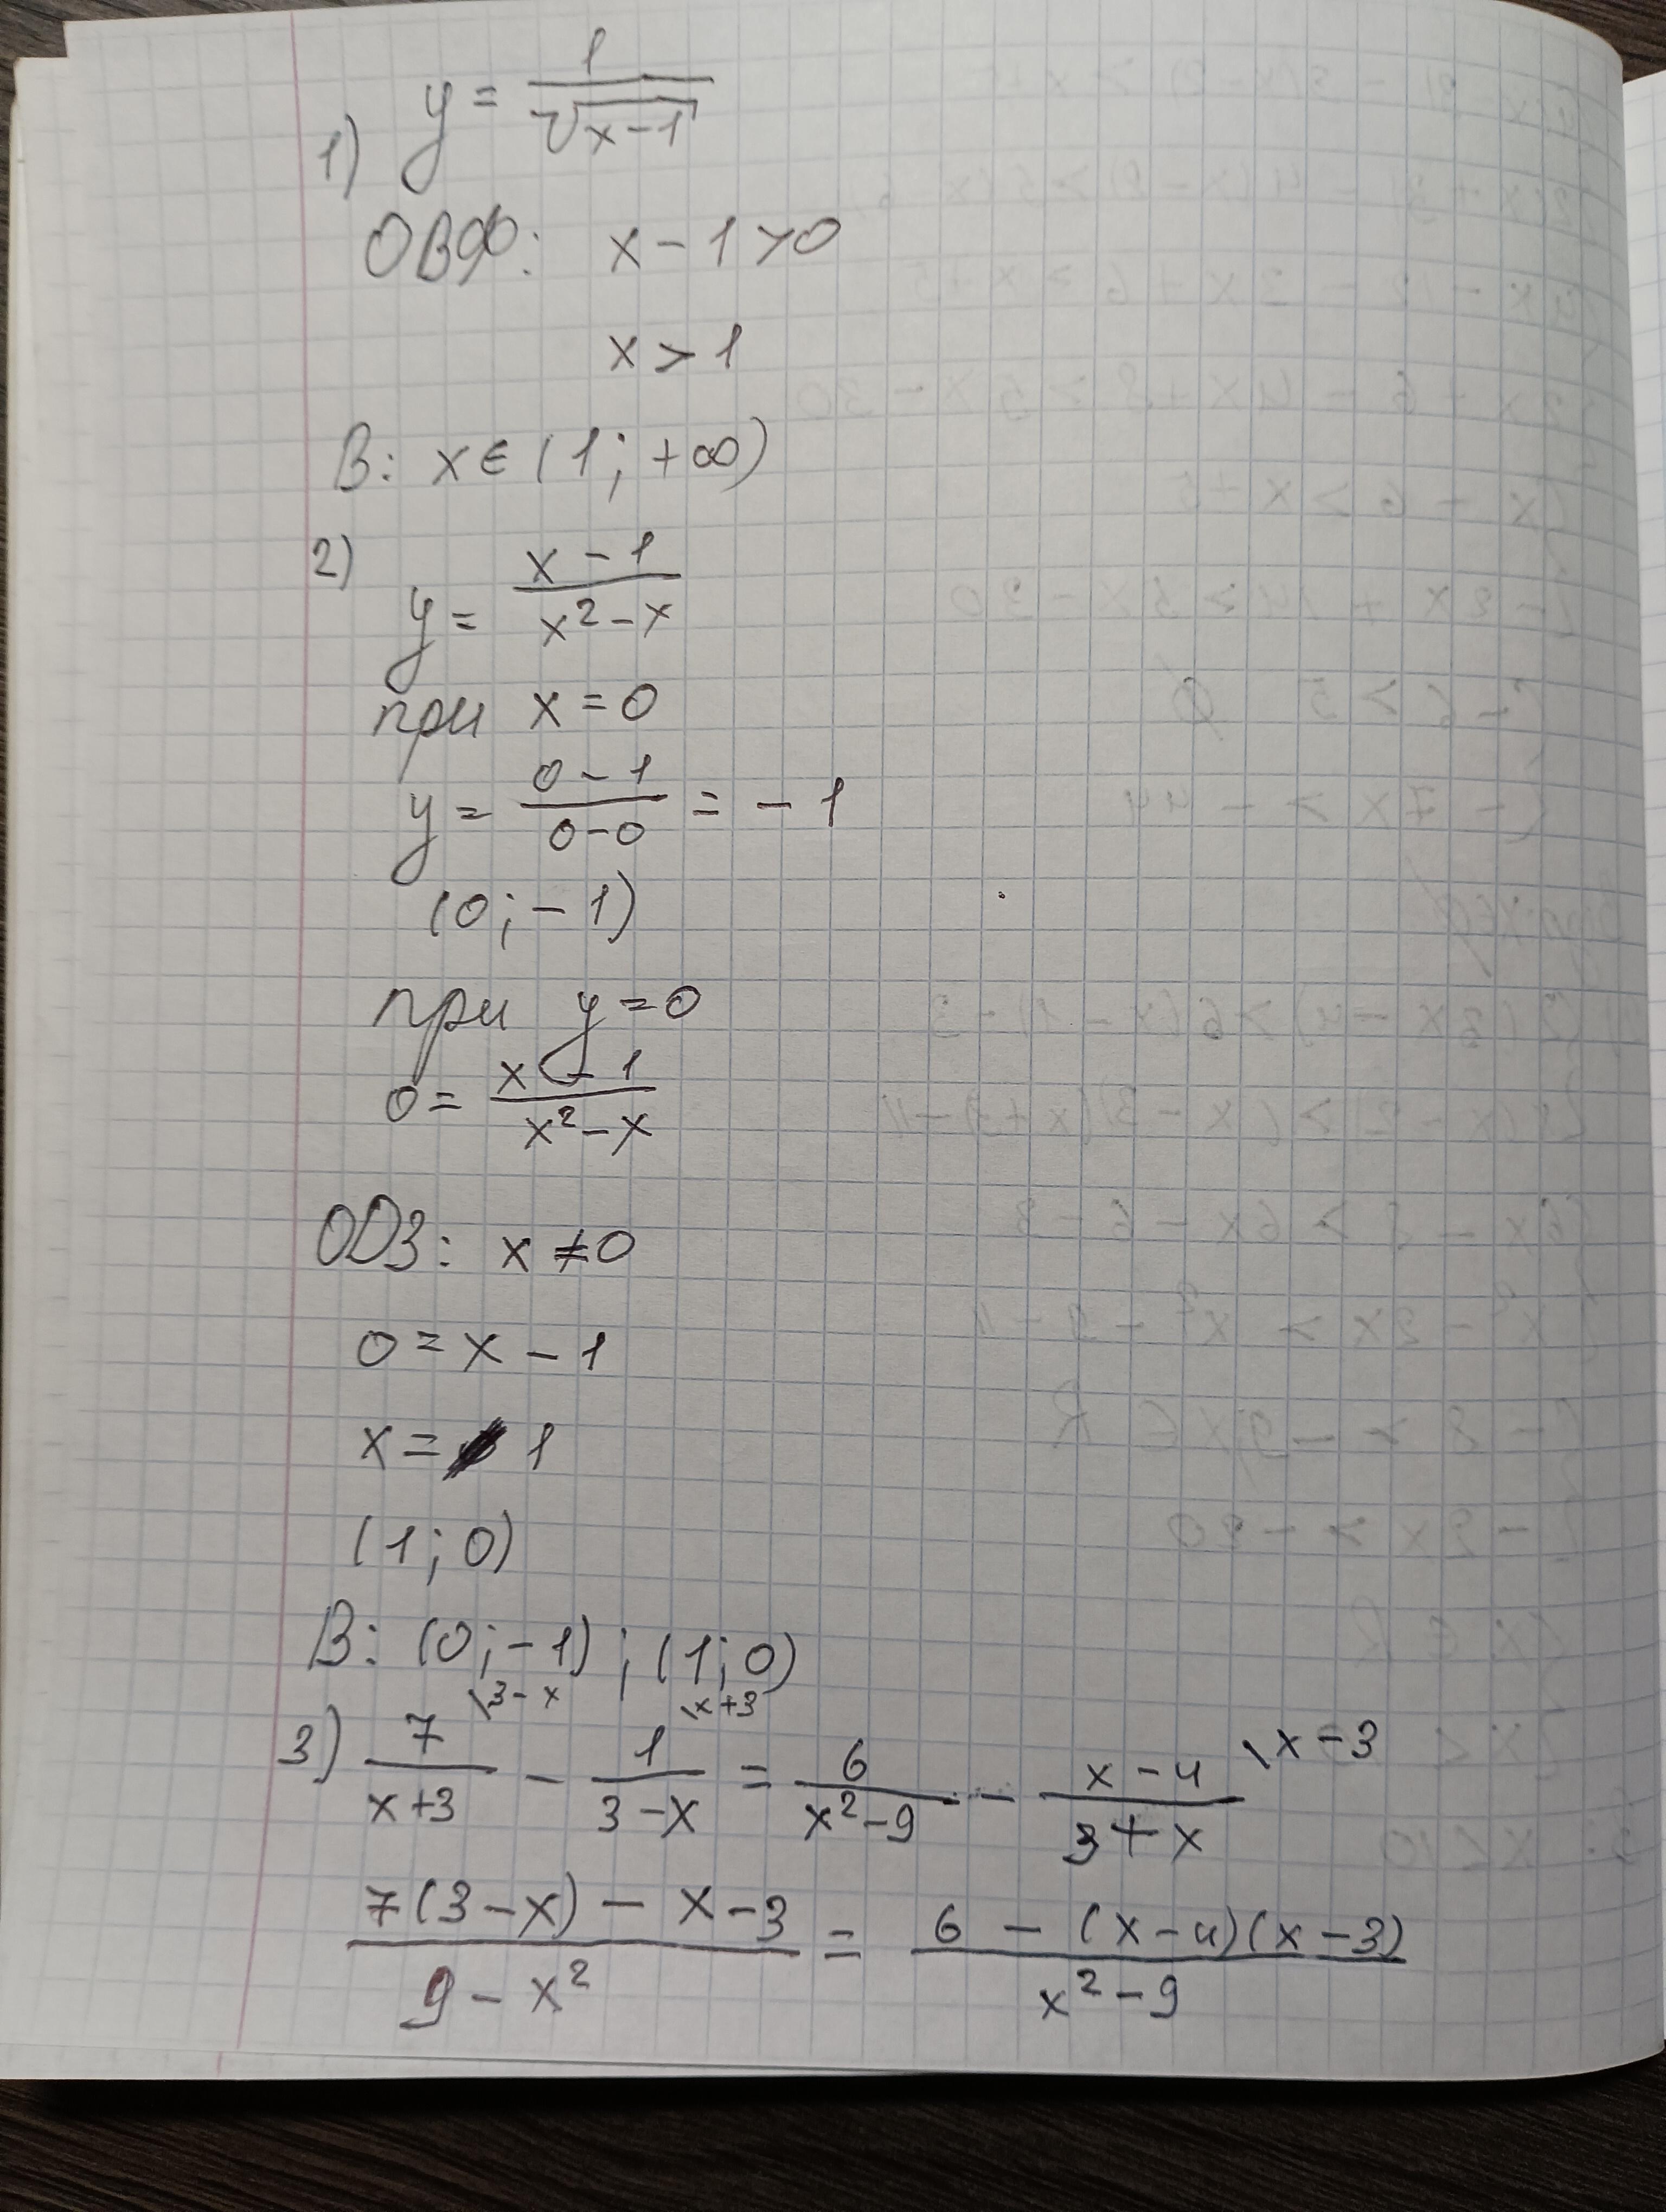 1) y = 1/√(x-1)
ОВФ: x - 1 > 0
x > 1
В: x ∈ (1; +∞)
2) y = (x - 1)/(x² - x)
при x = 0
y = (0 - 1)/(0 - 0) = - 1
(0; - 1)
при y = 0
0 = (x - 1)/(x² - x)
ОДЗ: x ≠ 0
0 = x - 1
x = 1
(1; 0)
В: (0; - 1) ; (1; 0)
3) 7/(x+3) \3-x - 1/(3-x) \x+3 = 6/(x²-9) - (x-4)/(3+x) \x-3
(7(3-x) - x-3)/(9 - x²) = (6 - (x-4)(x-3))/(x² - 9)